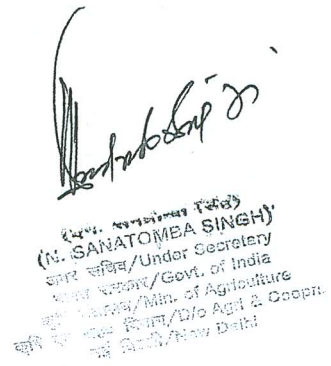 (एन. सनातोम्बा सिंह)
(N. SANATOMBA SINGH)
अवर सचिव/Under Secretary
भारत सरकार/Govt. of India
कृषि /Min. of Agriculture
कृषि एवं विभाग/D/o Agri & Coopn.
नई दिल्ली/New Delhi